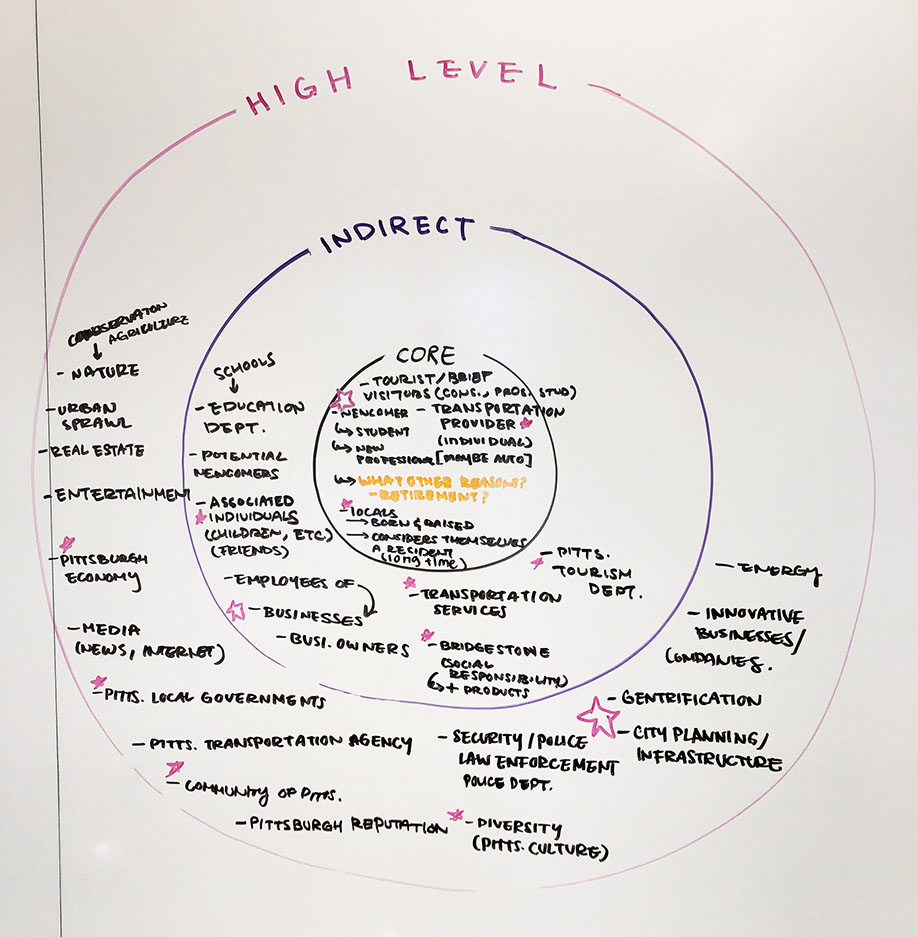 HIGH LEVEL
INDIRECT
CORE
- TOURIST/BRIEF
VISITORS (CONS., PROS. STUD)
- NEWCOMER
↳ STUDENT
↳ NEW
PROFESSIONAL
- TRANSPORTATION
PROVIDER
(INDIVIDUAL)
[MAYBE AUTO]
↳ WHAT OTHER REASONS?
- RETIREMENT?
- LOCALS
→ BORN & RAISED
→ CONSIDERS THEMSELVES
A RESIDENT
(long time)
SCHOOLS
- EDUCATION
DEPT.
- POTENTIAL
NEWCOMERS
- ASSOCIATED
INDIVIDUALS
(CHILDREN, ETC)
(FRIENDS)
- EMPLOYEES OF
- BUSINESSES
- BUSI. OWNERS
- TRANSPORTATION
SERVICES
- BRIDGESTONE
(SOCIAL
RESPONSIBILITY)
↳ + PRODUCTS
- PITTS.
TOURISM
DEPT.
CONSERVATION
AGRICULTURE
- NATURE
- URBAN
SPRAWL
- REAL ESTATE
- ENTERTAINMENT
- PITTSBURGH
ECONOMY
- MEDIA
(NEWS, INTERNET)
- PITTS. LOCAL GOVERNMENTS
- PITTS. TRANSPORTATION AGENCY
- COMMUNITY OF PITTS.
- PITTSBURGH REPUTATION
- DIVERSITY
(PITTS. CULTURE)
- SECURITY/POLICE
LAW ENFORCEMENT
POLICE DEPT.
- ENERGY
- INNOVATIVE
BUSINESSES/
COMPANIES.
- GENTRIFICATION
- CITY PLANNING/
INFRASTRUCTURE